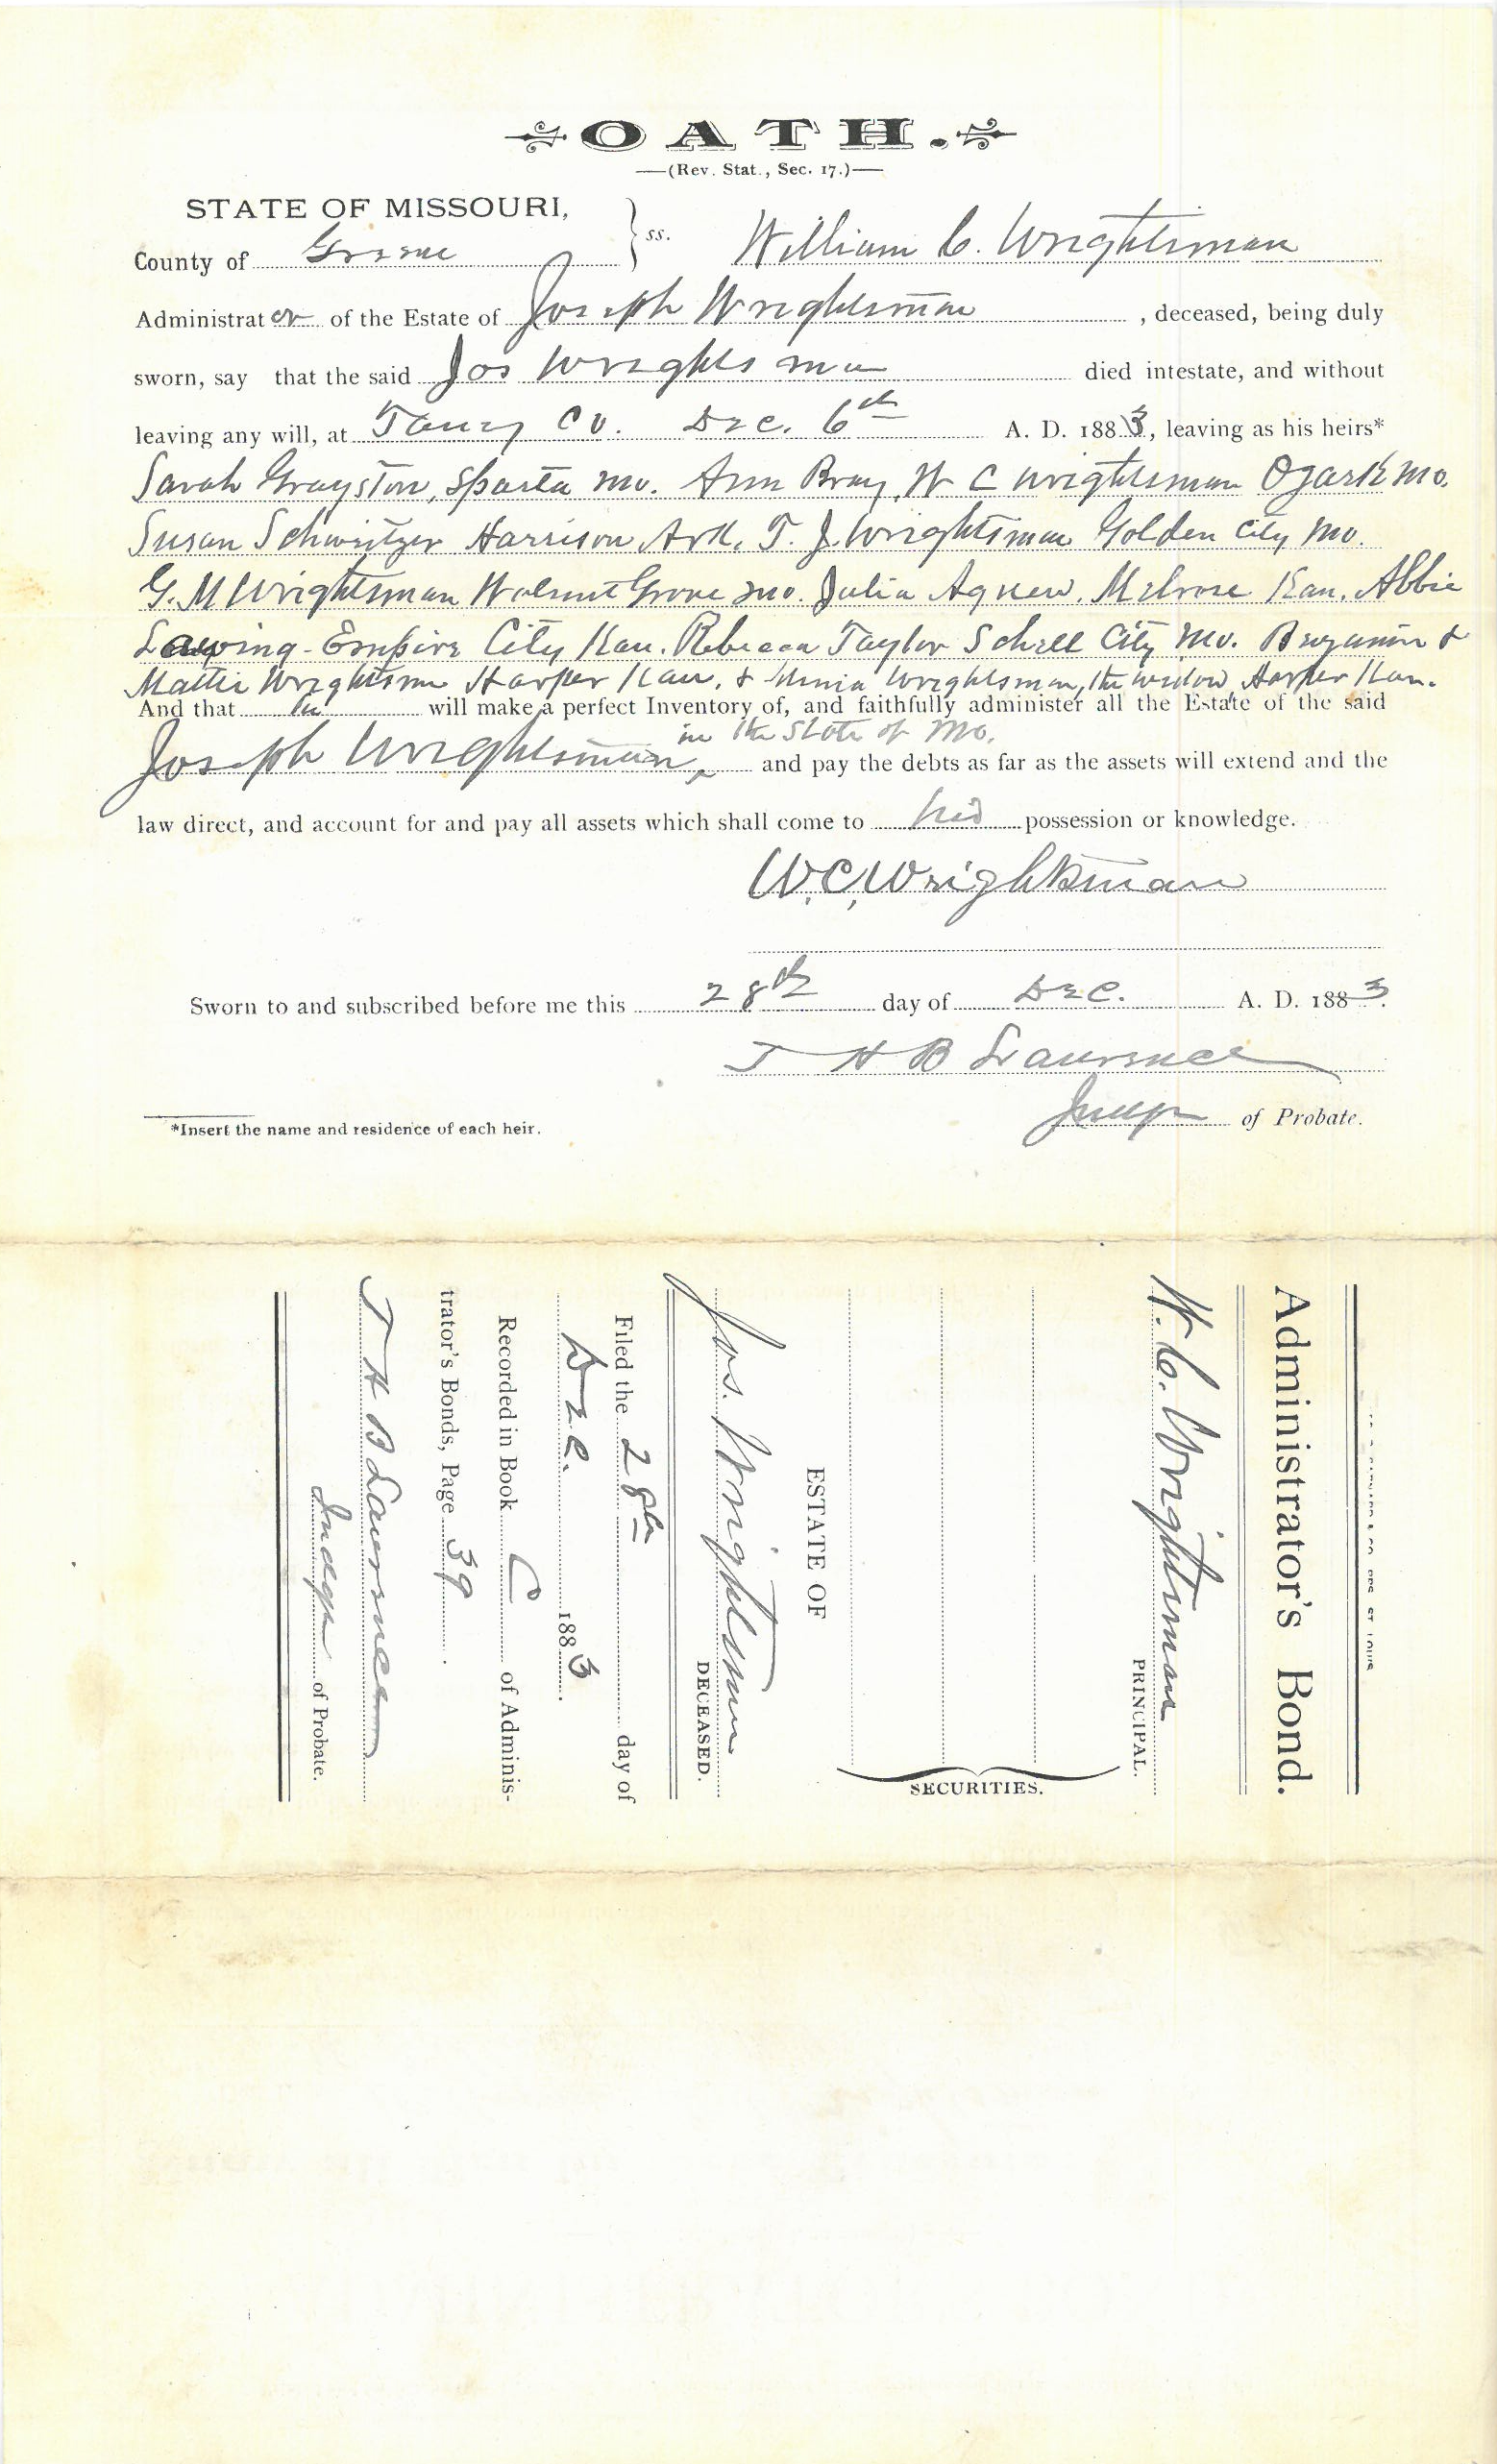 OATH.
(Rev. Stat., Sec. 17.)
STATE OF MISSOURI,
County of Greene ss. William C. Wrightsman
Administrator of the Estate of Joseph Wrightsman , deceased, being duly
sworn, say that the said Jos Wrightsman died intestate, and without
leaving any will, at Taney Co. Dec. 6th A. D. 1883, leaving as his heirs*
Sarah Grayston, Sparta Mo. Ann Bray, W C Wrightsman Ozark Mo.
Susan Schwitzer Harrison Ark, T. J. Wrightsman Golden City Mo.
G. M Wrightsman Walnut Grove Mo. Julia Agnew, Melrose Kan. Abbie
Lawing - Empire City Kan. Rebecca Taylor Schell City Mo. Benjamin &
Mattie Wrightsman Harper Kan. & Wrightsman, the widow Harper Kan.
And that he will make a perfect Inventory of, and faithfully administer all the Estate of the said
in the State of Mo.
Joseph Wrightsman, and pay the debts as far as the assets will extend and the
law direct, and account for and pay all assets which shall come to his possession or knowledge.
W. C. Wrightsman
Sworn to and subscribed before me this 28th day of Dec. A. D. 1883.
T H B Lawrence
Judge of Probate.
*Insert the name and residence of each heir.
Administrator's Bond.
W. C. Wrightsman
PRINCIPAL.
SECURITIES.
ESTATE OF
Jos. Wrightsman
DECEASED.
Filed the 28th day of
Dec. 1883.
Recorded in Book C of Adminis-
trator's Bonds, Page 39.
T H B Lawrence
Judge of Probate.